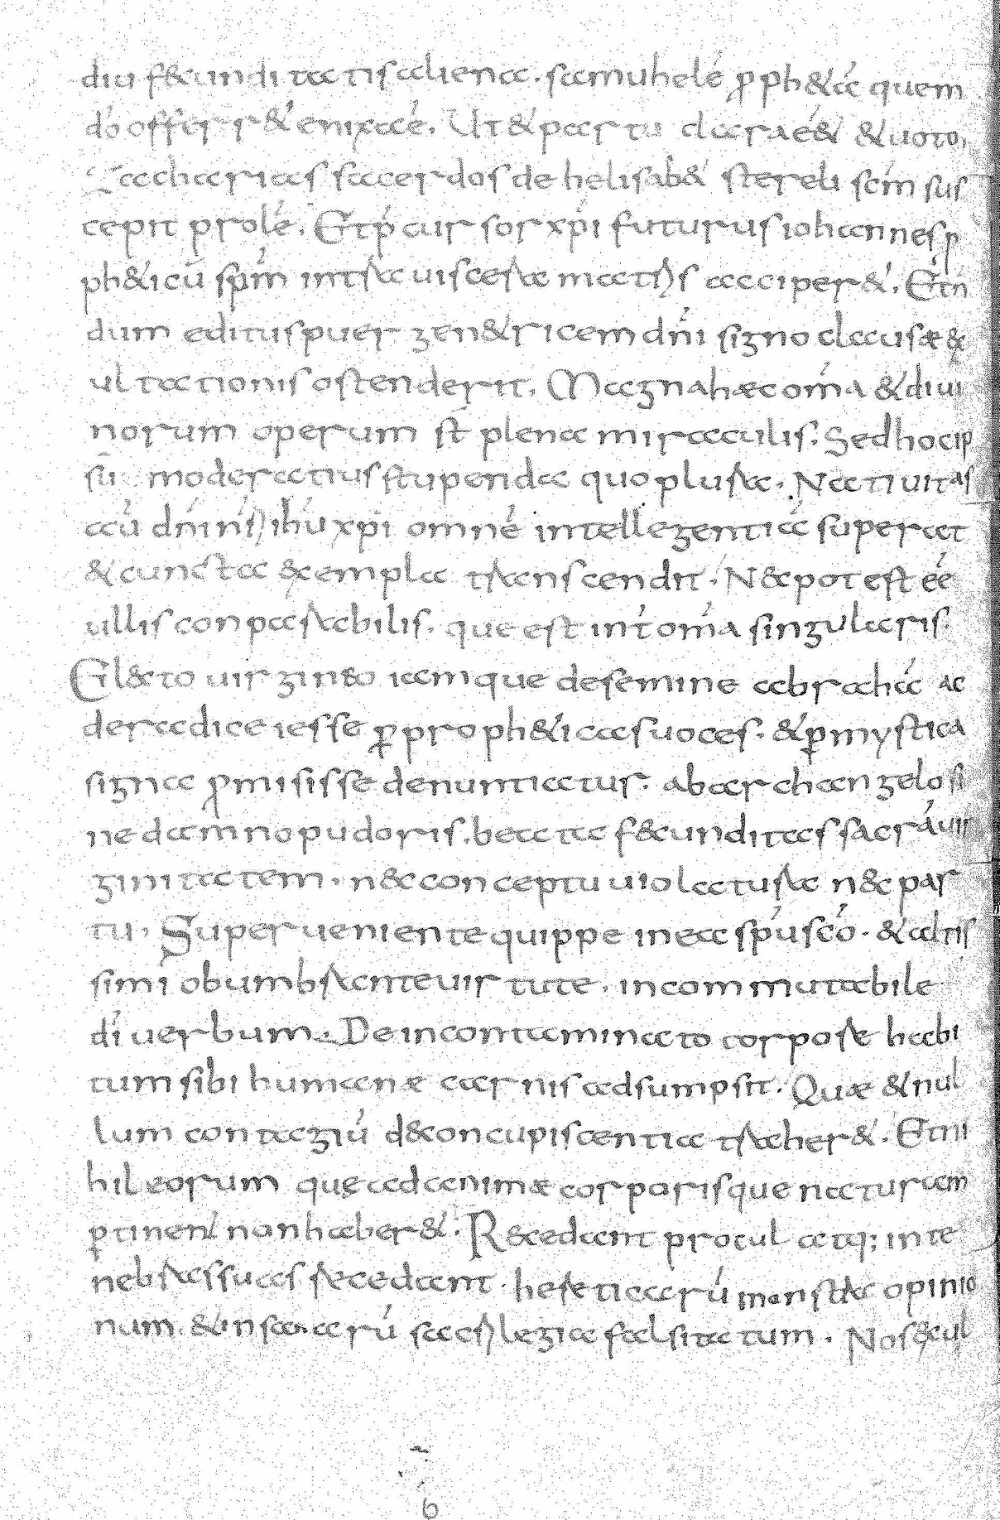 diu fecunditatis aliena. samuhelē ꝓph&ā quem
dō offerr& enixa ē. Ut & partu clara ē& & uoto,
Zacharias sacerdos de helisab& stereli scm̄ sus
cepit prolē. Et p̄cursor xp̄i futurus iohannes ꝓ
ph&icū sp̄m intra uiscera mat̄s acciper&. Et n̄
dum editus puer gen&ricem dn̄i signo clausæ ex
ultationis ostenderit. Magna hæc om̄a & diui
norum operum st̄ plena miraculis. Sed hoc ip
sū moderatius stupenda quo plura. Natiuitas
aū dn̄i nr̄i ih̄u xp̄i omnē intellegentiā superat
& cuncta exempla transcendit. Nec potest ēē
ullis conparabilis. que est int̄ om̄a singularis.
Electo uirgineo iamque de semine abrahā ac
de radice iesse ꝑ proph&icas uoces. & ꝑ mystica
signa ꝓmisisse denuntiatus. ab archangelo si
ne damno pudoris. beata fecunditas sacrā uir
ginitatem. nec conceptu uiolatura nec par
tu. Superueniente quippe in ea sp̄u sc̄o. & altis
simi obumbrante uirtute. incommutabile
dī uerbum. De incontaminato corpore habi
tum sibi humanæ carnis adsumpsit. Quæ & nul
lum contagiū de concupiscentia traher&. Et ni
hil eorum quę ad animæ corporisque naturam
ꝑtinen& non haber&. Recedant procul atq; in te
nebras suas recedant. hereticarū monstra opinio
num & insanarū sacrilegia falsitatum. Nos ecul
6